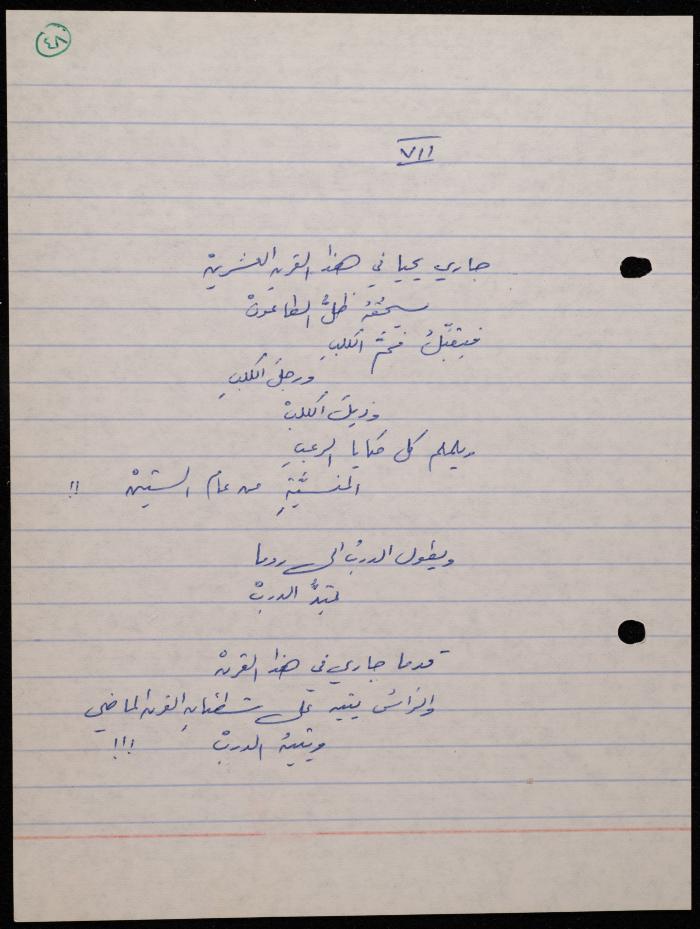 ٤٨
VII
جاري يحيا في هذا القرنِ العشرينْ
يسحقُهُ ظلُّ الطاعونْ
فيقبّلُ فخذَ الكلبِ
ورجلَ الكلبِ
وذيلَ الكلبْ
ويلملم كل حكايا الرعبِ
المنسيَّةِ من عام الستينْ !!
ويطول الدربُ الى روما
يمتدُّ الدربْ
قدما جاري في هذا القرنْ
والرأسُ يتيه على شطئانِ القرن الماضي
ويتيهُ الدربْ !!!